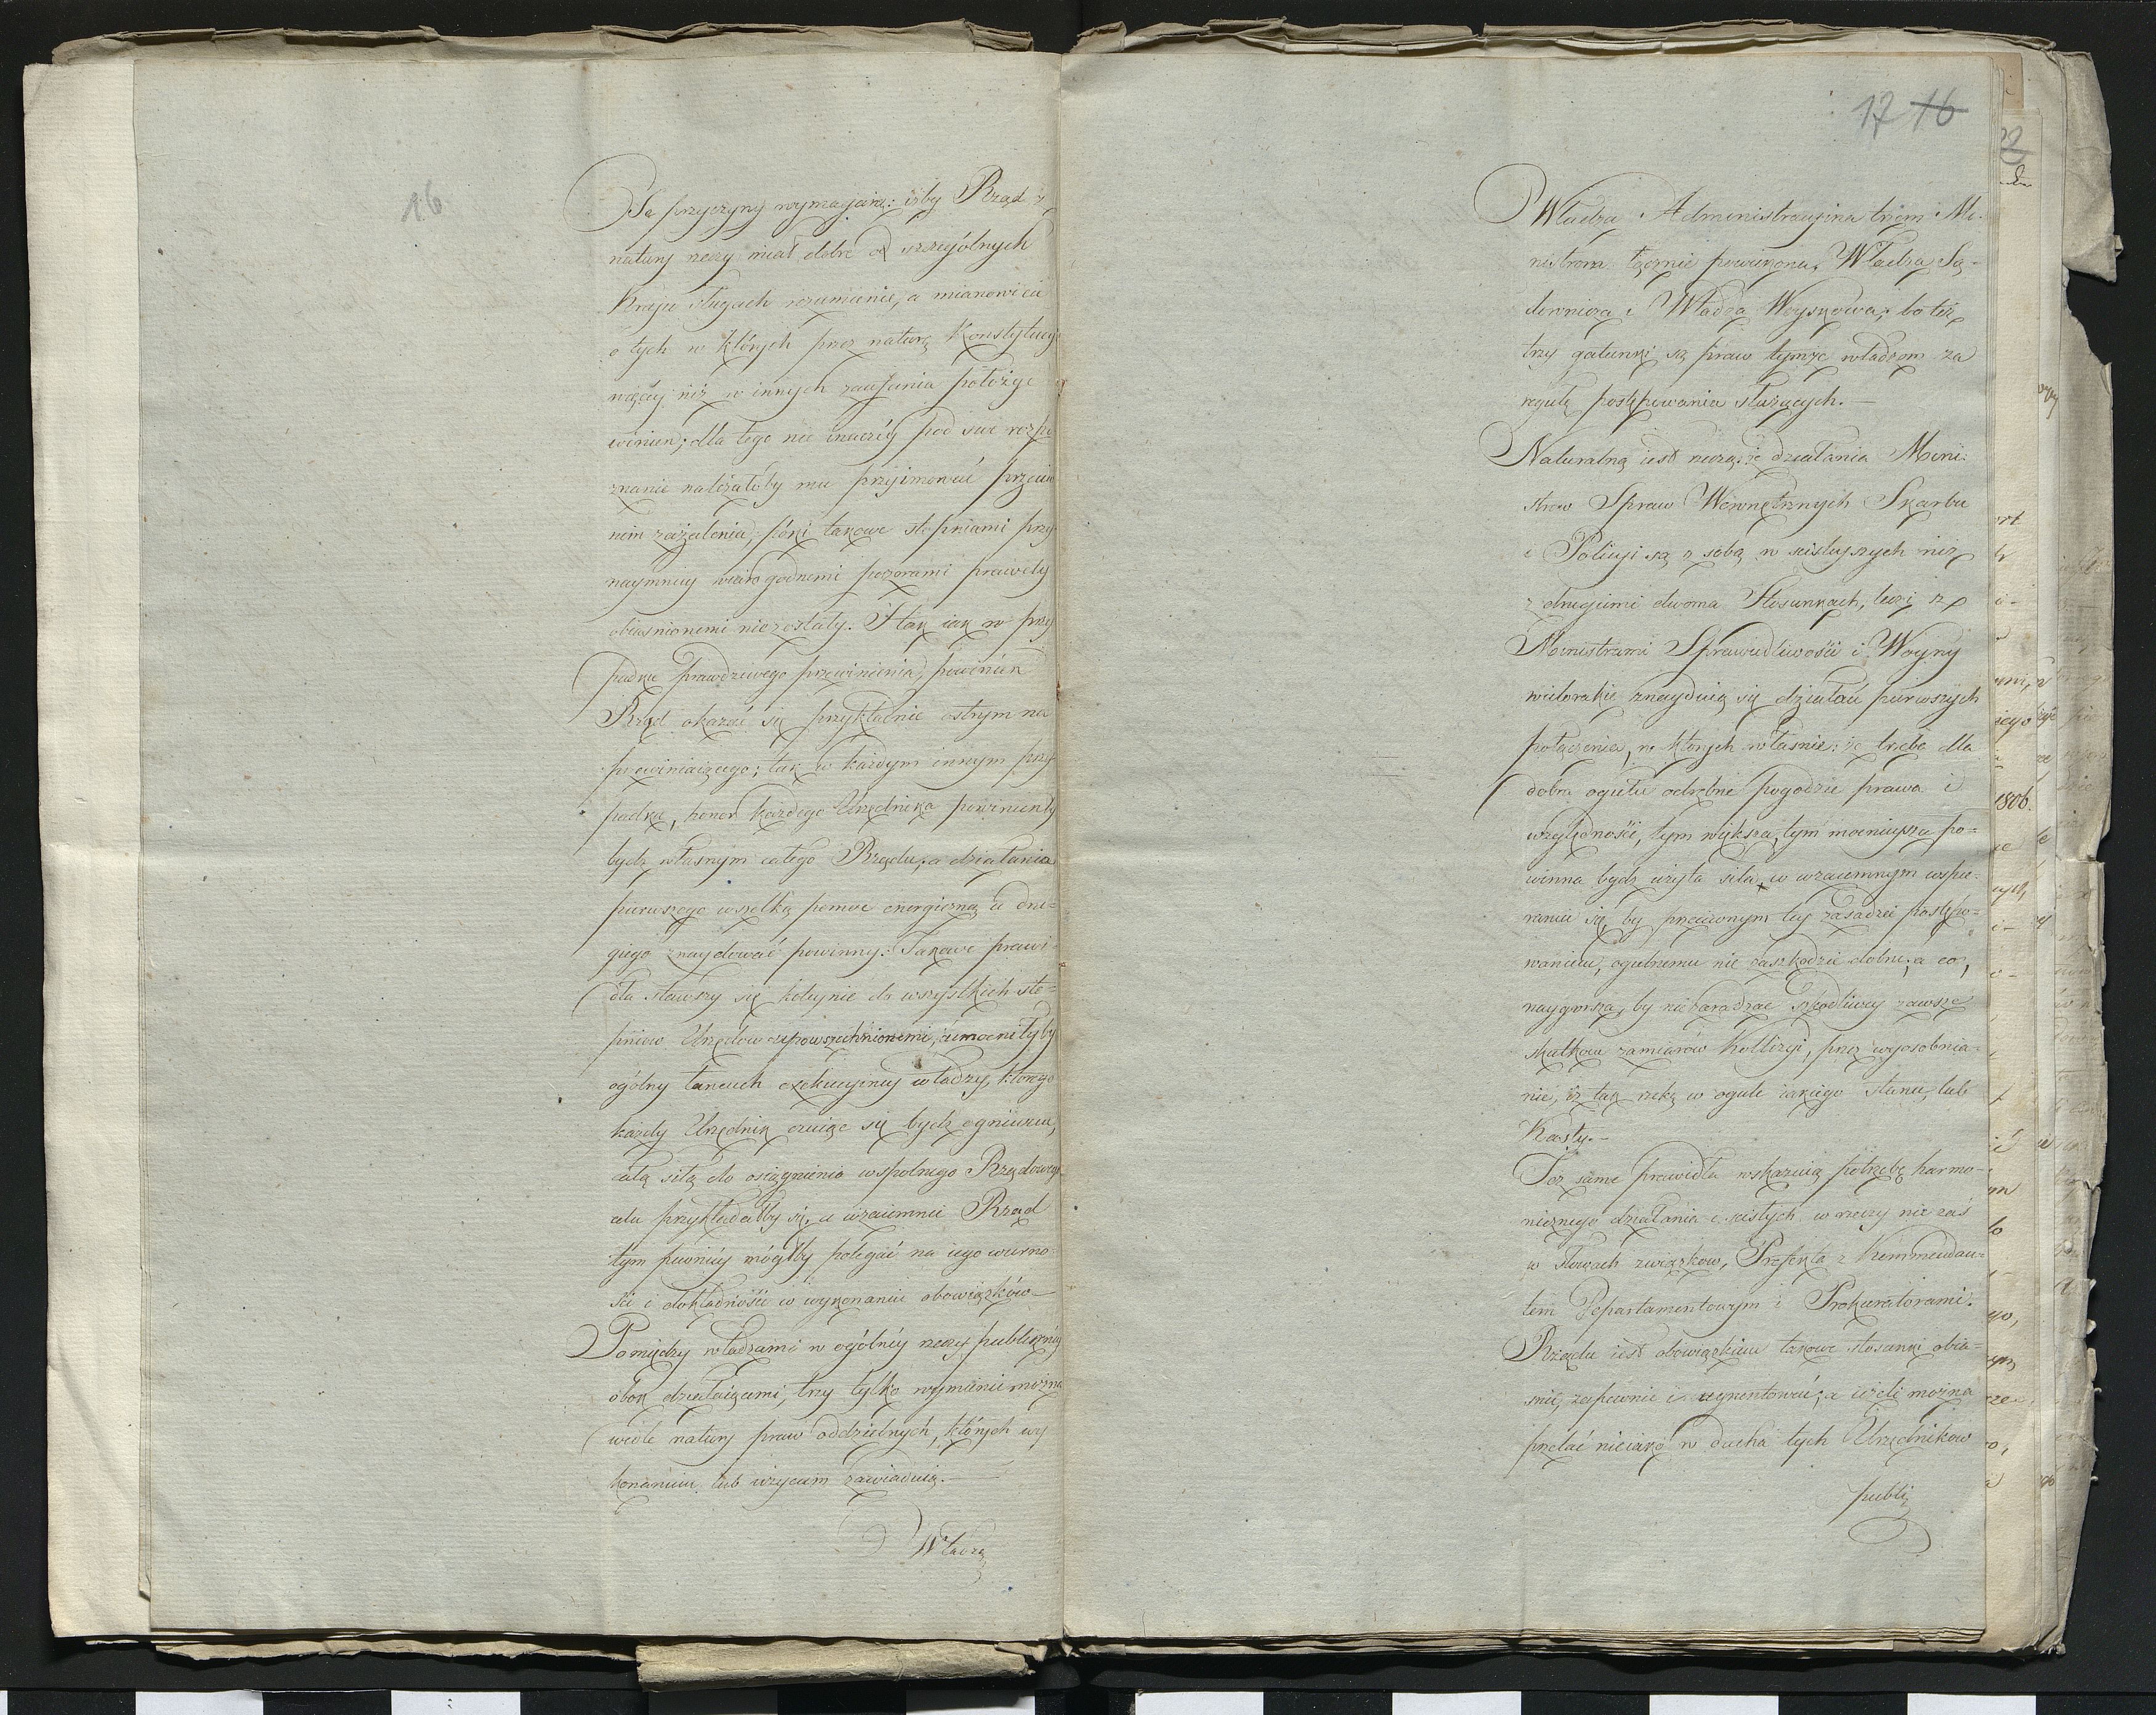 16
Te przyczyny wymagaią: iżby Rząd z
natury rzeczy miał dobre o szczególnych
Kraju sługach rozumienie, a mianowicie
o tych w których przez naturę Konstytucyi
więcey niż w innych zaufania położyć
winien; dla tego nie inaczéy pod swe rozpo
znanie należałoby mu przyimować przeciw
nim zażalenia, póki takowe stopniami przy
naymniey wiarogodnemi pozorami prawdy
obiasnionemi nie zostały. I tak iak w przy
padku prawdziwego przewinienia, powinien
Rząd okazać się przykładnie ostrym na
przewiniaiącego; tak w każdym innym przy
padku, honor każdego Urzędnika powinienby
bydz własnym całego Rządu, a działania
pierwszego wszelką pomoc energiczną w dru-
giego znaydować powinny. Takowe prawi-
dła stawszy się koleynie do wszystkich sto-
pniow Urzędow upowszechnionemi, umocniłyby
ogólny łancuch exekucyiney władzy, którego
każdy Urzędnik czuiąc się bydz ogniwem,
całą siłą do osiągnienia wspolnego Rządowego
celu przykładałby się, a wzaiemnie Rząd
tym pewniéy mógłby polegać na iego wierno-
ści i dokładności w wykonaniu obowiązków.—
Pomiędzy władzami w ogólnéy rzeczy publicznéy
obok działaiącemi, trzy tylko wymienić można
wedle natury praw oddzielnych, których wy
konaniem lub użyciem zawiaduią.—
Władza
17 16
Władza Administracyina trzem Mi-
nistrom łącznie powierzona, Władza Są-
downicza i Władza Woyskowa; bo też
trzy gatunki są praw tymże władzom za
regułę postępowania służących.—
Naturalną iest rzeczą: że działania Mini-
strow Spraw Wewnętrznych Skarbu
i Policyi są z sobą w scisleyszych niż
z drugiemi dwoma Stosunkach, lecz iż z
Ministrami Sprawiedliwości i Woyny
wielorakie znayduią się działań pierwszych
połączenia, w których własnie: że trzeba dla
dobra ogułu odrębne pogodzic prawa i
względności, tym większa, tym mocnieysza po-
winna bydz użyta siła w wzaiemnym wspie-
raniu się, by przeciwnym tey zasadzie postępo-
waniem, ogulnemu nie zaszkodzic dobru, a co,
naygorsza, by nie zaradzać szkodliwey zawsze
skutkow zamiarów Kollizyi, przez wyosobnia-
nie, iż tak rzekę w ogule iakiego stanu, lub
Kasty.—
Toż same prawidła wskazuią potrzebę harmo-
nicznego działania i scisłych w rzeczy nie zaś
w słowach związkow, Prefekta z Kommendan-
tem Departamentowym i Prokuratorami.
Rządu iest obowiązkiem takowe stosunki obia-
snić, zapewnić i ugruntować; a ieżeli można
przelać nieiako w ducha tych Urzędnikow
publi